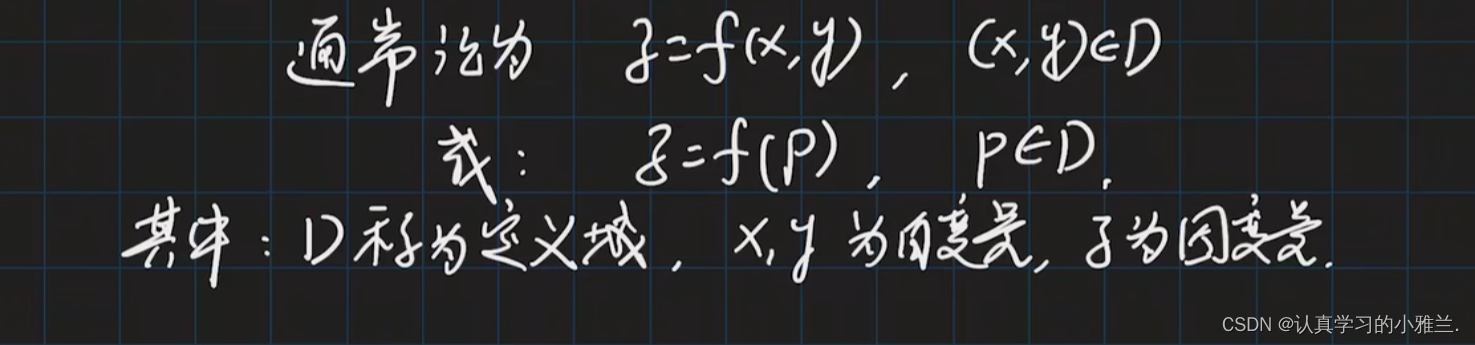 通常记为 z=f(x,y), (x,y)∈D
或: z=f(P), P∈D.
其中: D称为定义域, x,y为自变量, z为因变量.
CSDN @认真学习的小雅兰.